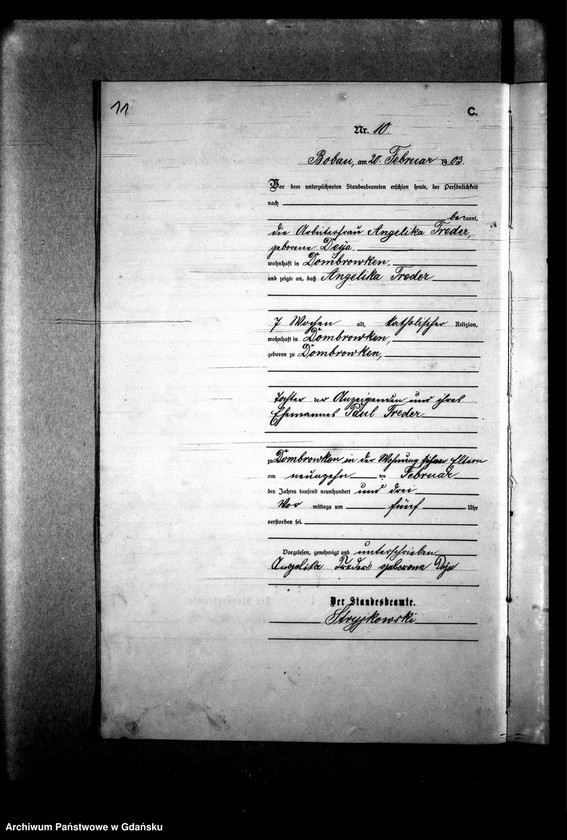 11
C.
Nr. 10.
Bobau, am 20. Februar 1903.
Vor dem unterzeichneten Standesbeamten erschien heute, der Persönlichkeit
nach
bekannt,
die Arbeiterfrau Angelika Treder,
geborene Deja,
wohnhaft in Dombrowken,
und zeigte an, daß Angelika Treder
7 Wochen alt, katholischer Religion,
wohnhaft in Dombrowken,
geboren zu Dombrowken,
Tochter der Anzeigenden und ihres
Ehemannes Paul Treder
zu Dombrowken in der Wohnung ihrer Eltern
am neunzehn ten Februar
des Jahres tausend neunhundert und drei
Vor mittags um fünf Uhr
verstorben sei.
Vorgelesen, genehmigt und unterschrieben
Angelika Treder geborene Deja
Der Standesbeamte.
Stryjkowski
Archiwum Państwowe w Gdańsku